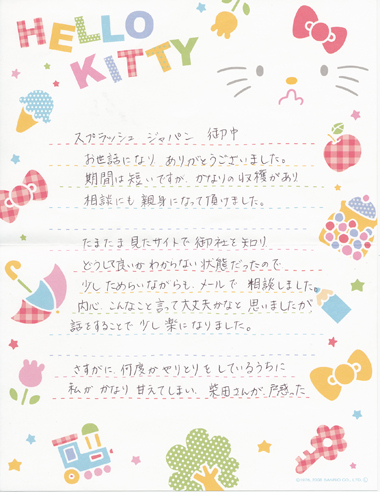 HELLO
KITTY
スプラッシュ ジャパン 御中
お世話になり ありがとうございました。
期間は短いですが、かなりの収穫があり
相談にも親身になって頂けました。
たまたま見たサイトで御社を知り
どうして良いかわからない状態だったので
少しためらいながらも、メールで相談しました。
内心、こんなこと言って大丈夫かなと思いましたが
話をすることで少し楽になりました。
さすがに、何度かやりとりをしているうちに
私がかなり甘えてしまい、柴田さんが戸惑った